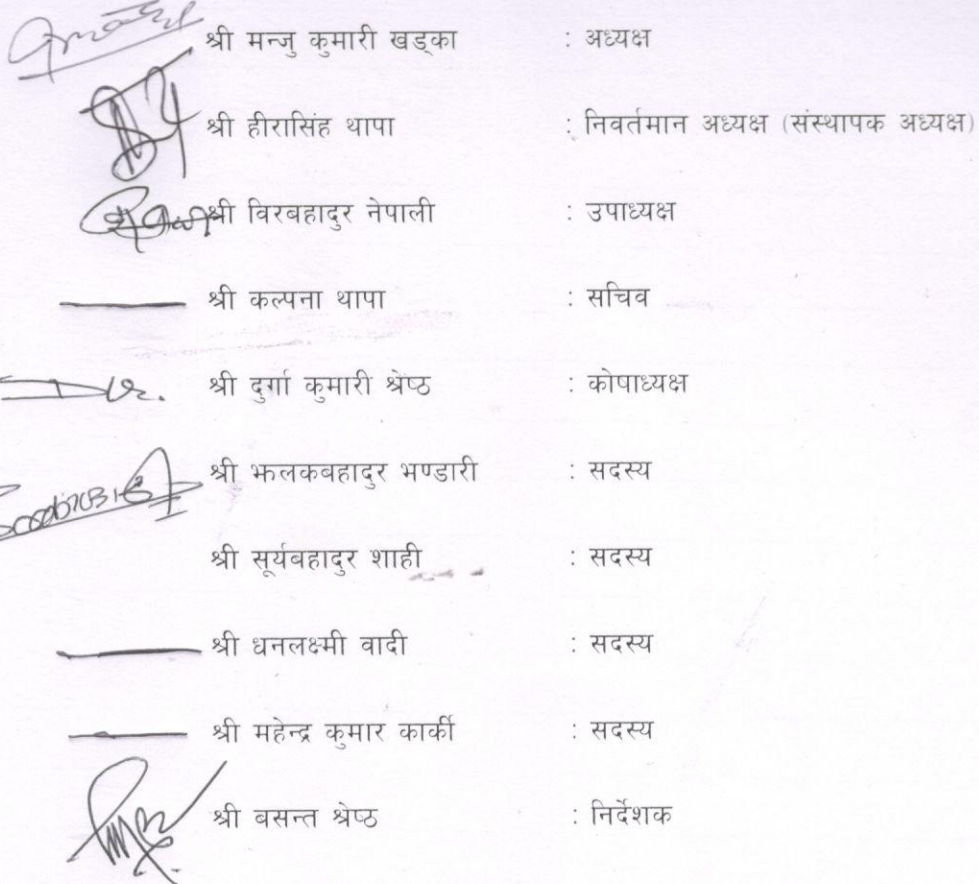 श्री मन्जु कुमारी खड्का : अध्यक्ष
श्री हीरासिंह थापा : निवर्तमान अध्यक्ष (संस्थापक अध्यक्ष)
श्री विरबहादुर नेपाली : उपाध्यक्ष
श्री कल्पना थापा : सचिव
श्री दुर्गा कुमारी श्रेष्ठ : कोषाध्यक्ष
श्री झलकबहादुर भण्डारी : सदस्य
श्री सूर्यबहादुर शाही : सदस्य
श्री धनलक्ष्मी वादी : सदस्य
श्री महेन्द्र कुमार कार्की : सदस्य
श्री बसन्त श्रेष्ठ : निर्देशक